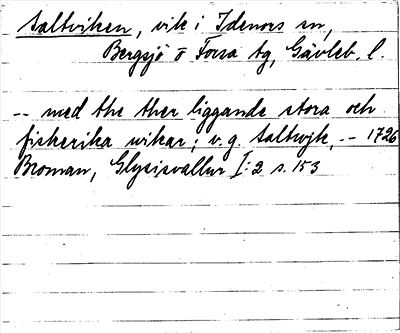 Saltviken, vik i Idenors sn,
Bergsjö o Forsa tg, Gävleb. l.
-- med the ther liggande stora och
fiskerika wikar; v.g. Saltwijk, -- 1726
Broman, Glysisvallur I:2 s. 153